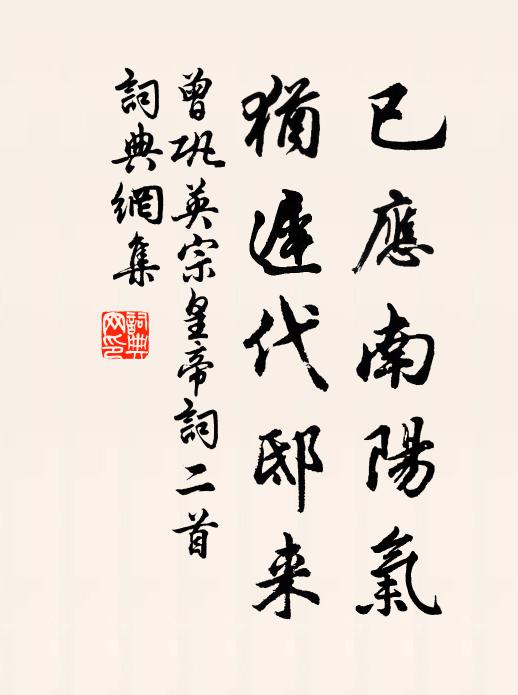 已應南陽氣
猶遲代邸来
曾巩英宗皇帝詞二首
詞典網集
詞典网印